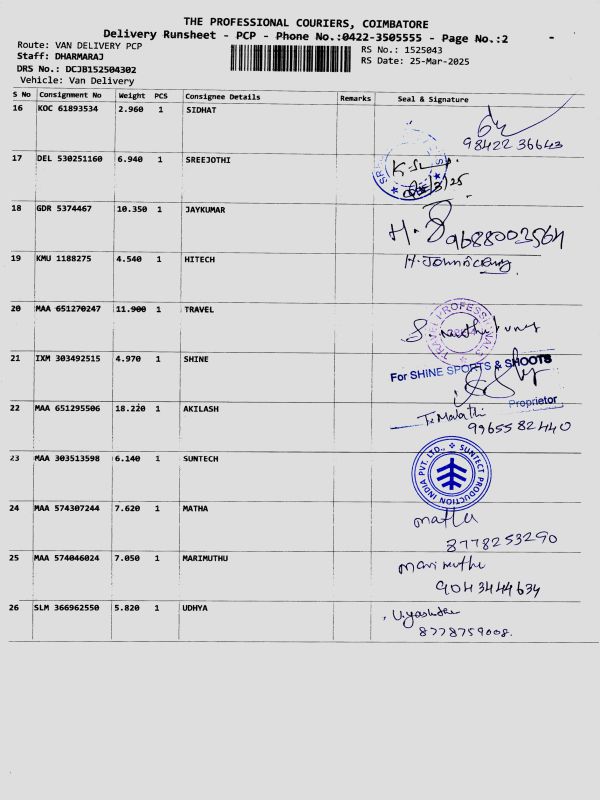 THE PROFESSIONAL COURIERS, COIMBATORE
Delivery Runsheet - PCP - Phone No.:0422-3505555 - Page No.:2 -
Route: VAN DELIVERY PCP
Staff: DHARMARAJ
DRS No.: DCJB152504302
Vehicle: Van Delivery
RS No.: 1525043
RS Date: 25-Mar-2025
S No Consignment No Weight PCS Consignee Details Remarks Seal & Signature
16 KOC 61893534 2.960 1 SIDHAT
98422 36643
17 DEL 530251160 6.940 1 SREEJOTHI
18 GDR 5374467 10.350 1 JAYKUMAR
9688003564
19 KMU 1188275 4.540 1 HITECH
20 MAA 651270247 11.900 1 TRAVEL
TRAVEL PROFESSIONALS
21 IXM 303492515 4.970 1 SHINE
For SHINE SPORTS & SHOOTS
Proprietor
22 MAA 651295506 18.220 1 AKILASH
T. Malathi
9965582440
23 MAA 303513598 6.140 1 SUNTECH
SUNTECT PRODUCTION INDIA PVT. LTD.,
24 MAA 574307244 7.620 1 MATHA
matha
8778253290
25 MAA 574046024 7.050 1 MARIMUTHU
mari muthu
9043444634
26 SLM 366962550 5.820 1 UDHYA
8778759008.